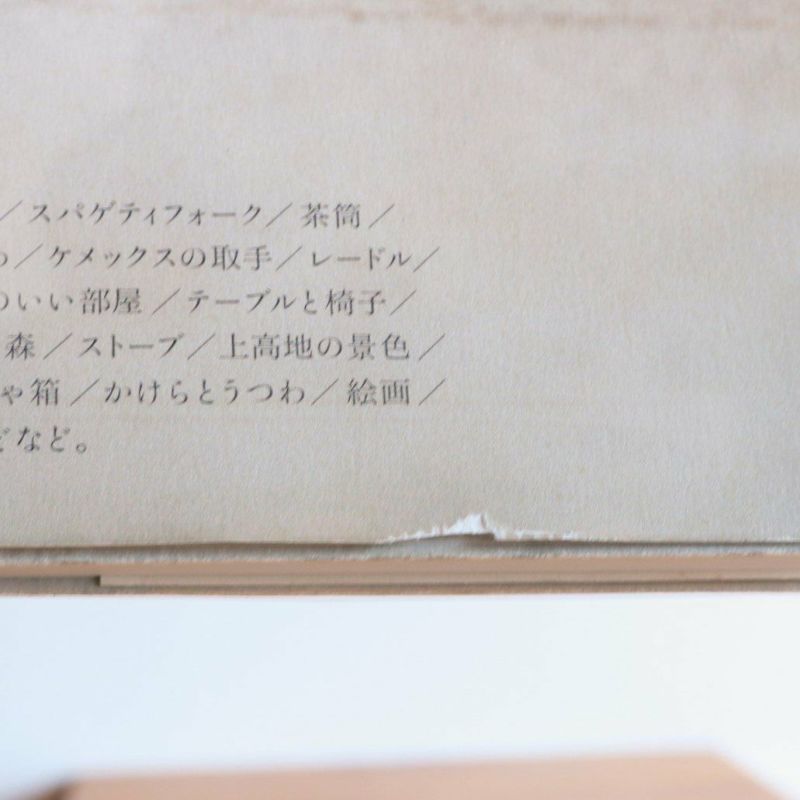 ／スパゲティフォーク／茶筒／
／ケメックスの取手／レードル／
いい部屋／テーブルと椅子／
森／ストーブ／上高地の景色／
ゃ箱／かけらとうつわ／絵画／
どなど。